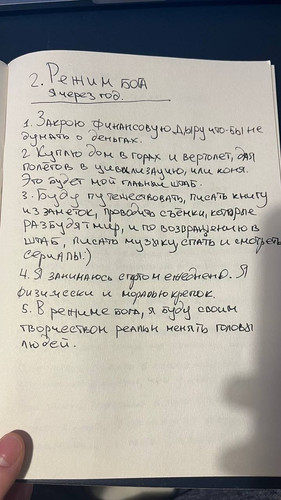 2. Режим бога
я через год.
1. Закрою финансовую дыру что-бы не
думать о деньгах.
2 Куплю дом в горах и вертолет, для
полетов в цивилизацию, или коня.
Это будет мой главный штаб.
3. Буду путешествовать, писать книгу
из заметок, проводить съёмки, которые
разбудят мир, и по возвращению в
штаб, писать музыку, спать и смотреть
сериалы:)
4. Я занимаюсь спортом ежедневно. Я
физически и морально крепок.
5. В режиме бога, я буду своим
творчеством реально менять головы
людей.